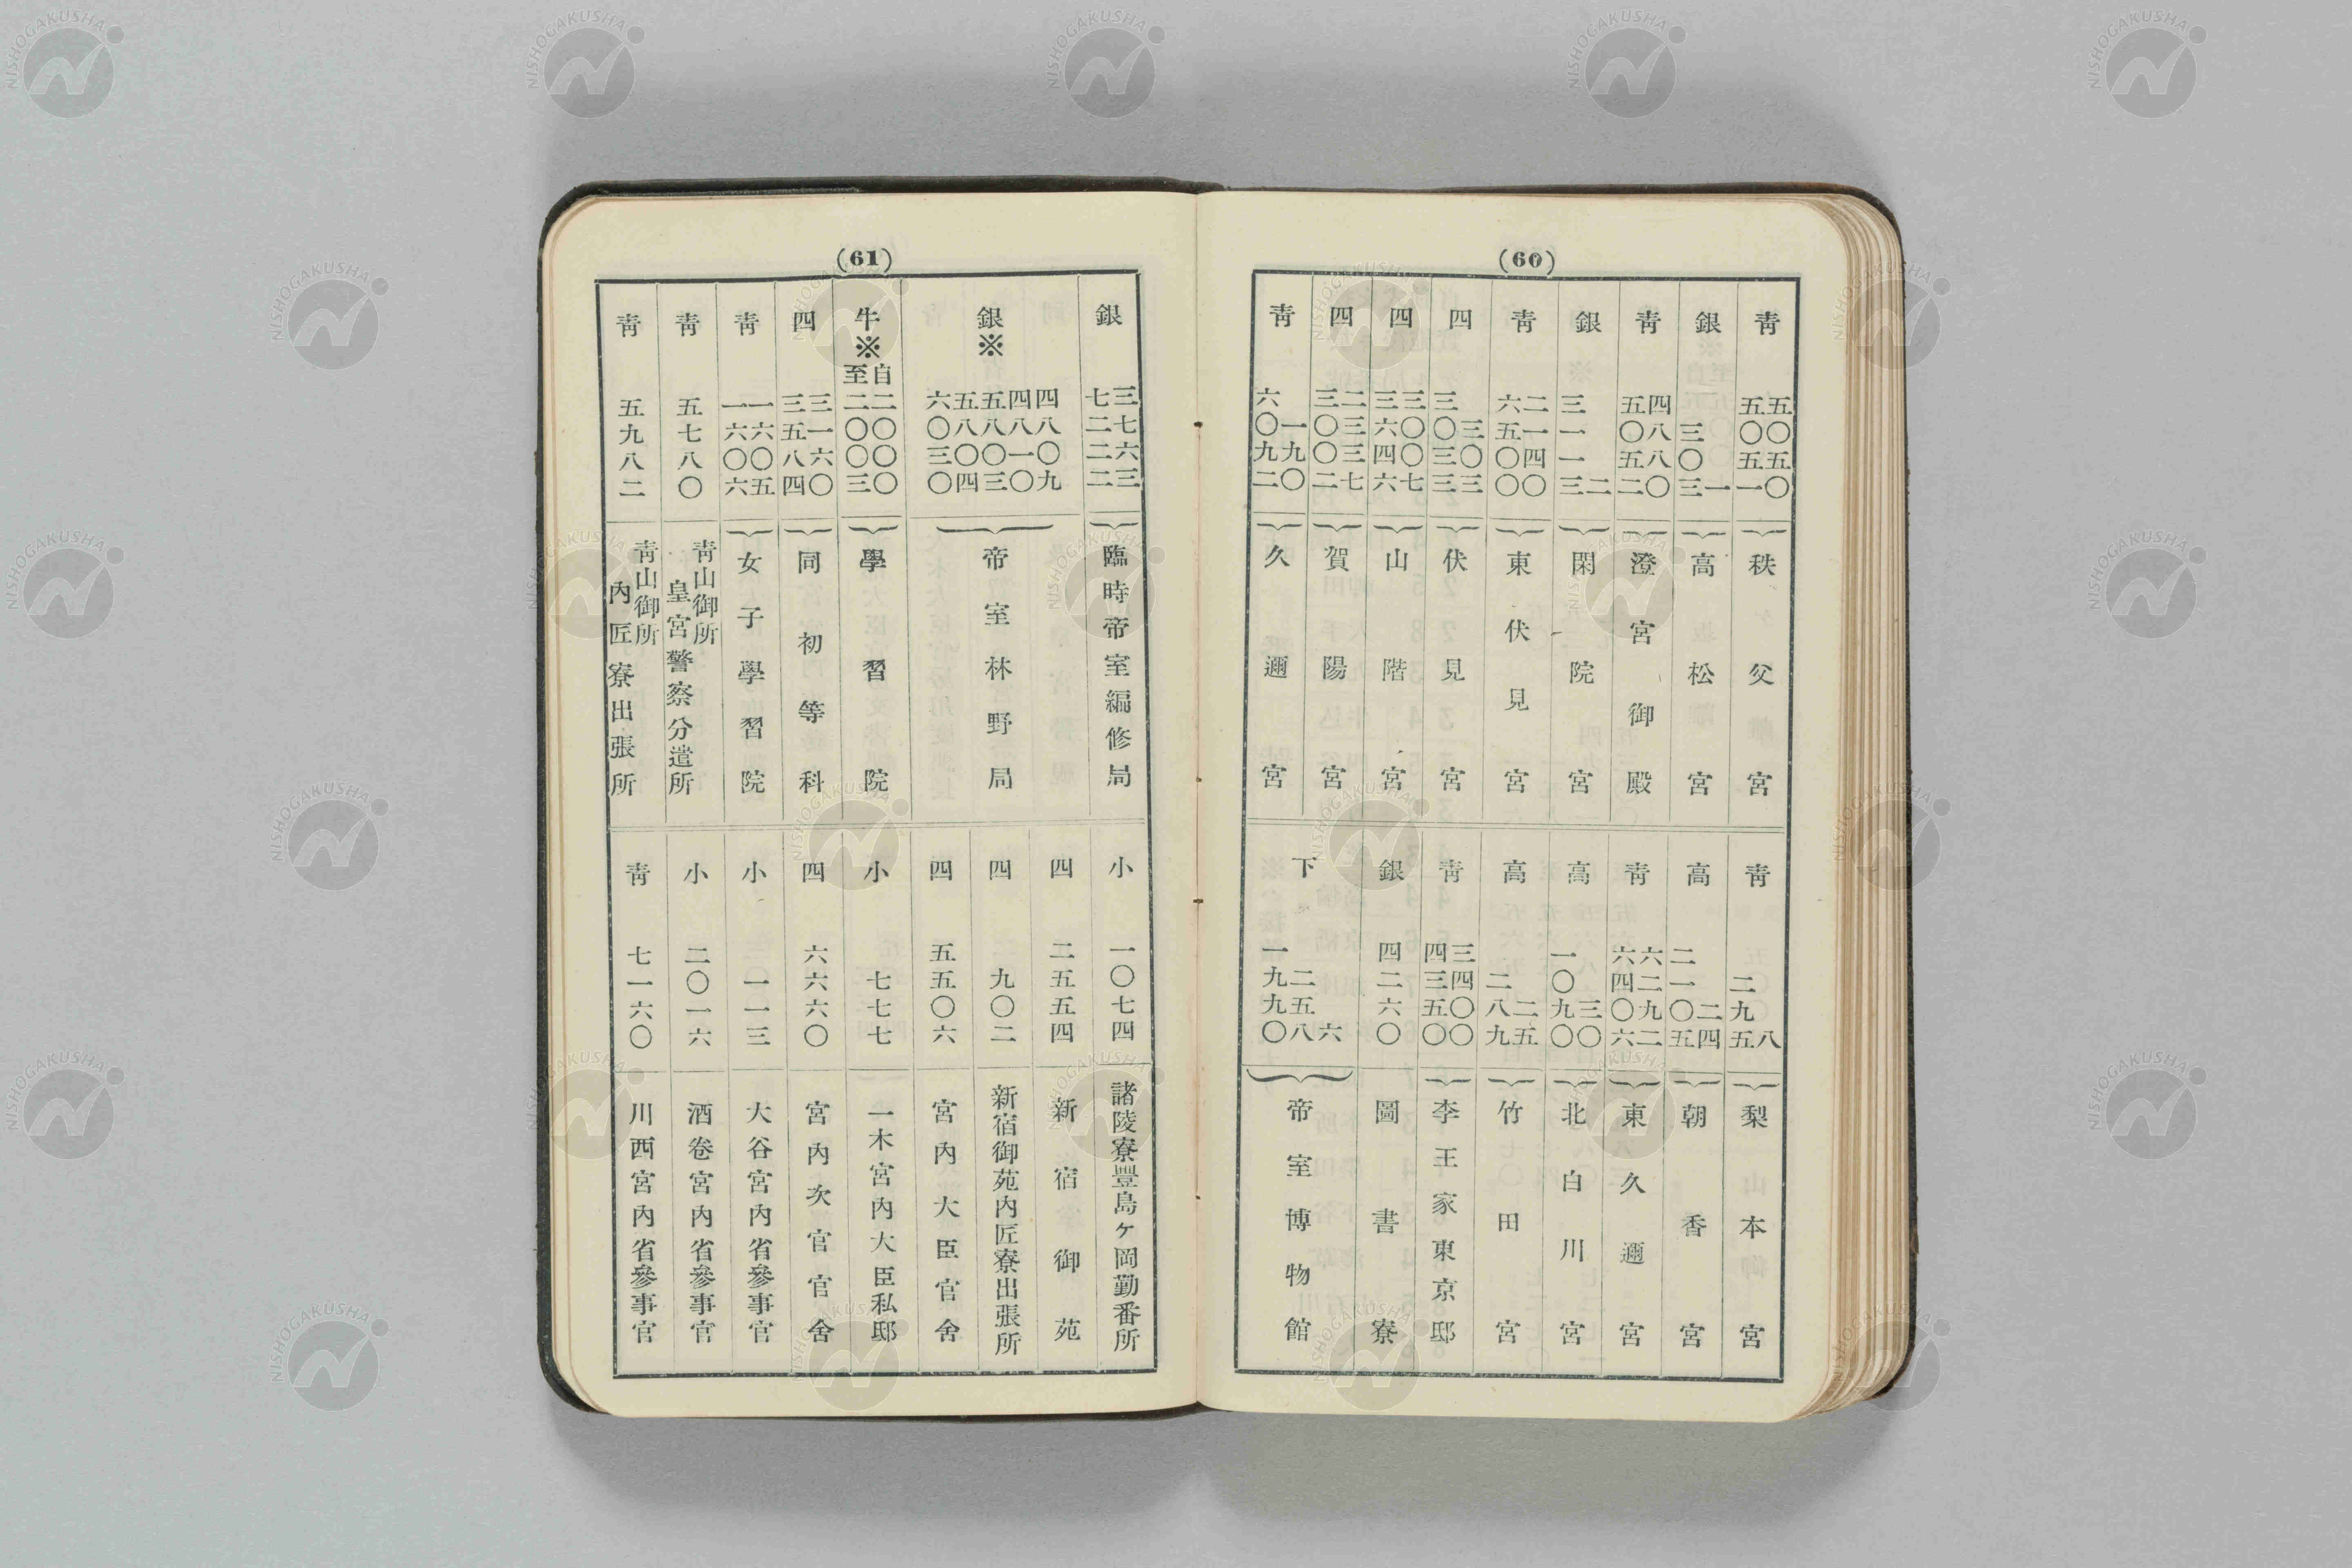 (60)
靑 五〇五〇 五〇五一 秩父宮
銀 一 三〇三 高松宮
靑 四八八〇 五〇五二 澄宮御殿
銀 二 三一一三 閑院宮
靑 二一四〇 六五〇〇 東伏見宮
四 三〇三 三〇三三 伏見宮
四 三〇〇七 三六四六 山階宮
四 二三三七 三〇〇二 賀陽宮
靑 一九〇 六〇九二 久邇宮
靑 八 二九五 梨本宮
高 二四 二一〇五 朝香宮
靑 六二九二 六四〇六 東久邇宮
高 三〇 一〇九〇 北白川宮
高 二五 二八九 竹田宮
靑 三四〇〇 四三五〇 李王家東京邸
銀 四二六〇 圖書寮
下 六 二五八 一九九〇 帝室博物館
(61)
銀 三七六三 七二二二 臨時帝室編修局
銀※ 四八〇九 四八一〇 五八〇三 五八〇四 六〇三〇 帝室林野局
牛※ 自二〇〇〇 至二〇〇三 學習院
四 三一六〇 三五八四 同初等科
靑 一六〇五 一六〇六 女子學習院
靑 五七八〇 靑山御所皇宮警察分遣所
靑 五九八二 靑山御所內匠寮出張所
小 一〇七四 諸陵寮豐島ヶ岡勤番所
四 二五五四 新宿御苑
四 九〇二 新宿御苑內匠寮出張所
四 五五〇六 宮內大臣官舍
小 七七七 一木宮內大臣私邸
四 六六六〇 宮內次官官舍
小 一一三 大谷宮內省參事官
小 二〇一六 酒卷宮內省參事官
靑 七一六〇 川西宮內省參事官